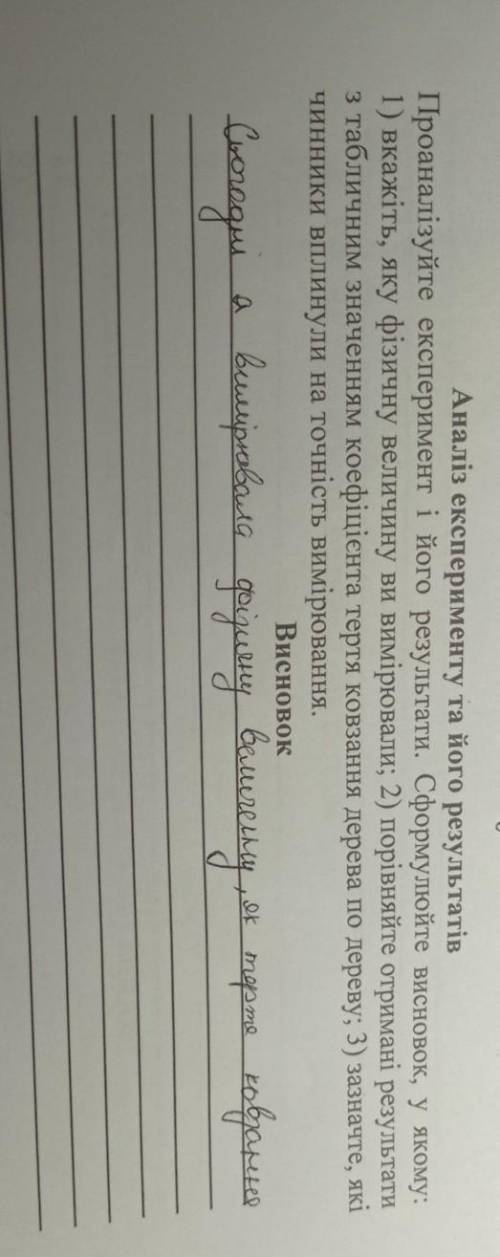 Аналіз експерименту та його результатів
Проаналізуйте експеримент і його результати. Сформулюйте висновок, у якому:
1) вкажіть, яку фізичну величину ви вимірювали; 2) порівняйте отримані результати
з табличним значенням коефіцієнта тертя ковзання дерева по дереву; 3) зазначте, які
чинники вплинули на точність вимірювання.
Висновок
Сьогодні я вимірювала фізичну величину, як терте ковзання